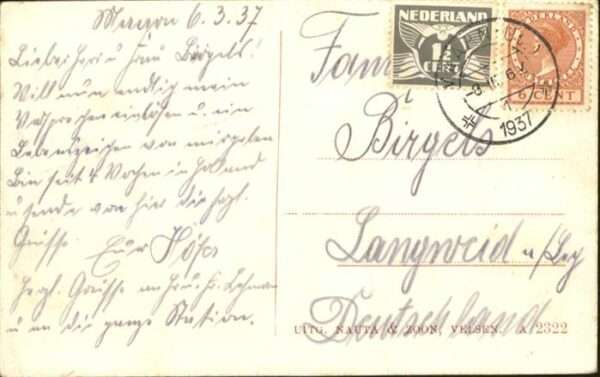 6.3.37
Lieber Herr u Frau Birgels!
Will nun endlich mein
Versprechen einlösen u. ein
Lebenszeichen von mir geben
Bin seit 4 Wochen in Holland
u sende von hier die herzl.
Grüsse. Eur Höfer
Herzl. Grüsse an Frau u. Hr. Lehman
u an die ganze Station.
NEDERLAND
1½
CENT
NEDERLAND
6 CENT
1937
Familie
Birgels
Langweid a/Lech
Deutschland
UITG. NAUTA & ZOON, VELSEN. A 2322